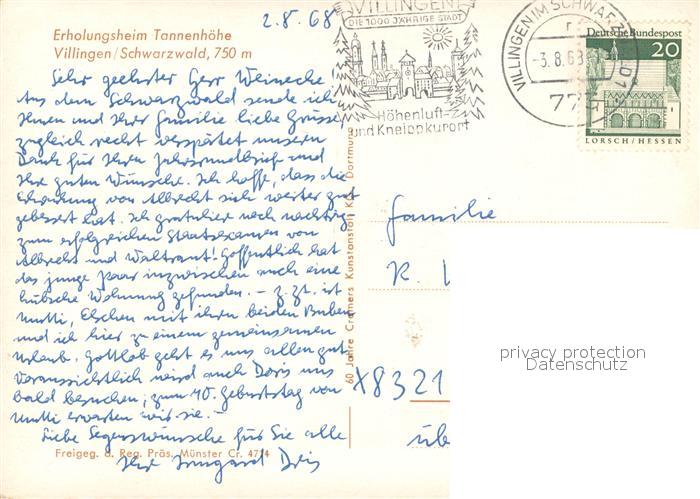 2.8.68
Erholungsheim Tannenhöhe
Villingen/Schwarzwald, 750 m
Sehr geehrter Herr Weinecke!
Aus dem Schwarzwald sende ich
Ihnen und Ihrer Familie liebe Grüsse,
zugleich recht verspätet unseren
Dank für Ihren Jahresrundbrief und
Ihre guten Wünsche. Ich hoffe, dass die
Erkrankung von Albrecht sich weiter gut
gebessert hat. Ich gratuliere noch nachträgl.
zum erfolgreichen Staatsexamen von
Albrecht und Waltraut! Hoffentlich hat
das junge Paar inzwischen auch eine
hübsche Wohnung gefunden. – Z. Zt. ist
Mutti, Elschen mit ihren beiden Buben
und ich hier zu einem gemeinsamen
Urlaub. Gottlob geht es uns allen gut.
Voraussichtlich wird auch Doris uns
bald besuchen, zum 70. Geburtstag von
Mutti erwarten wir sie. –
Liebe Segenswünsche für Sie alle
Ihre Irmgard
Freigeg. d. Reg. Präs. Münster Cr. 4774
60 Jahre Cramers Kunstanstalt KG. Dortmund
VILLINGEN
DIE 1000 JÄHRIGE STADT
Höhenluft-
und Kneippkurort
VILLINGEN IM SCHWARZWALD 1
-3.8.68
773
Deutsche Bundespost
20
LORSCH/HESSEN
Familie
R.
X8321
üb
privacy protection
Datenschutz